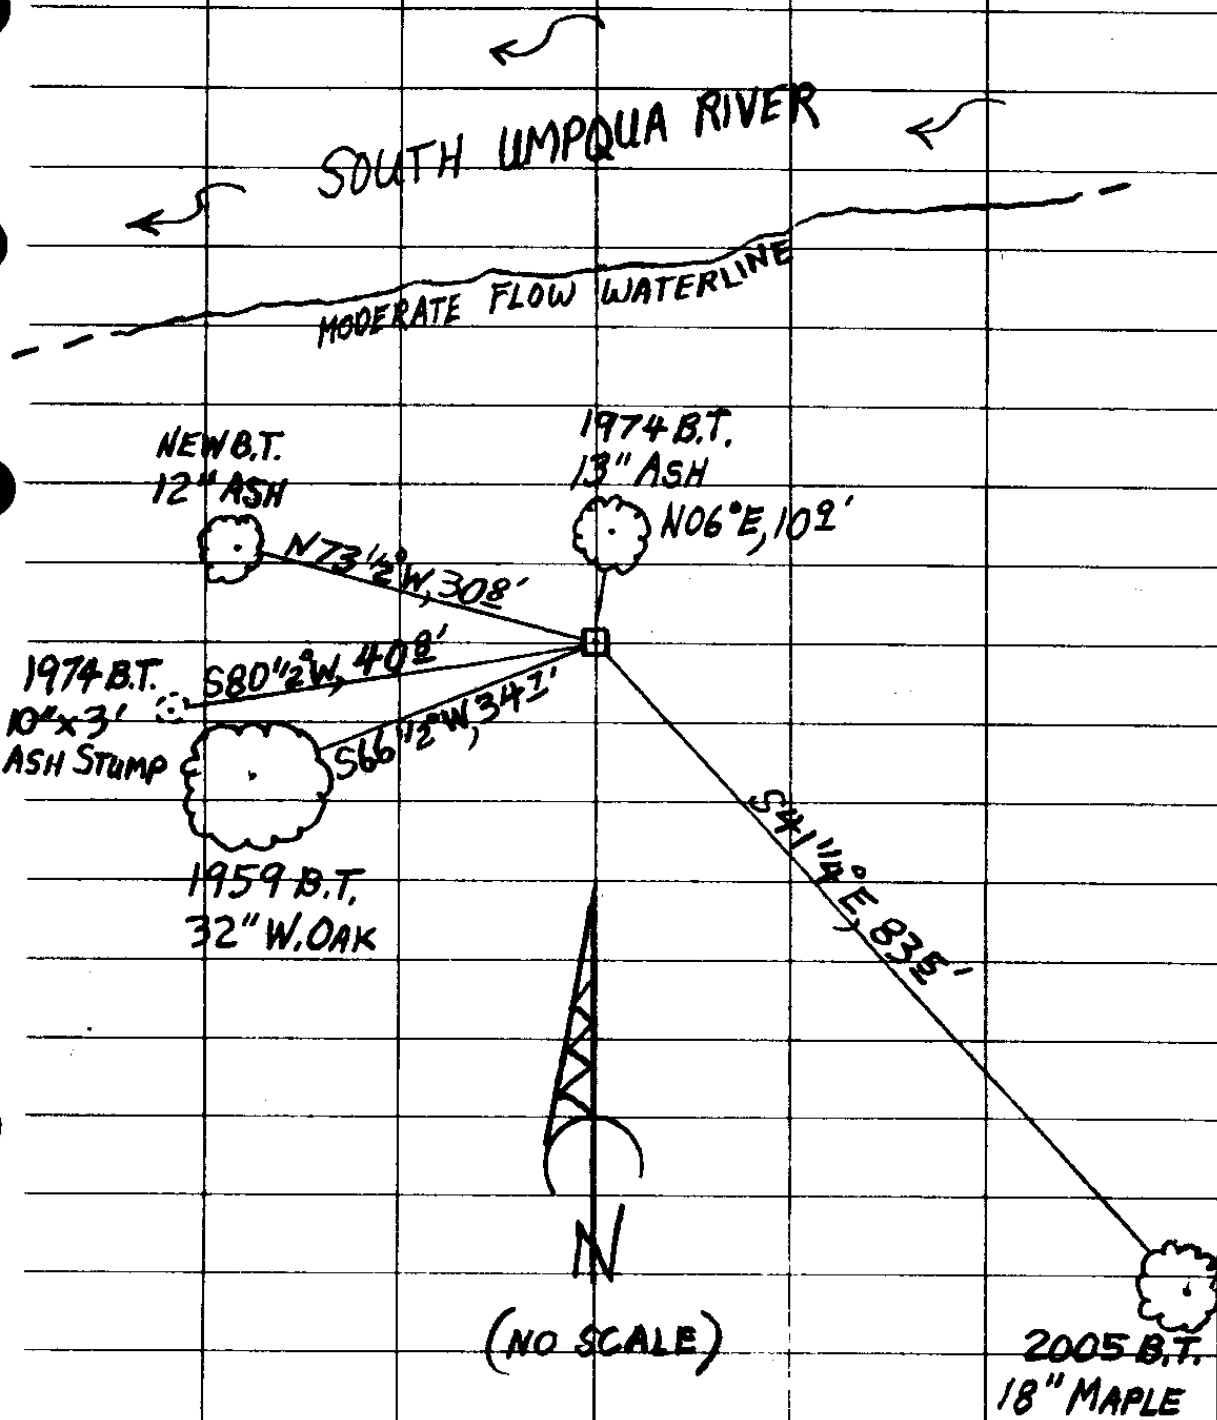 SOUTH UMPQUA RIVER
MODERATE FLOW WATERLINE
NEW B.T.
12" ASH
1974 B.T.
13" ASH
N06°E, 10.9'
N73 1/2°W, 30.8'
1974 B.T.
10"x3'
ASH STUMP
S80 1/2°W, 40.8'
S66 1/2°W, 34.7'
1959 B.T.
32" W. OAK
S41 1/4°E, 83.5'
N
(NO SCALE)
2005 B.T.
18" MAPLE